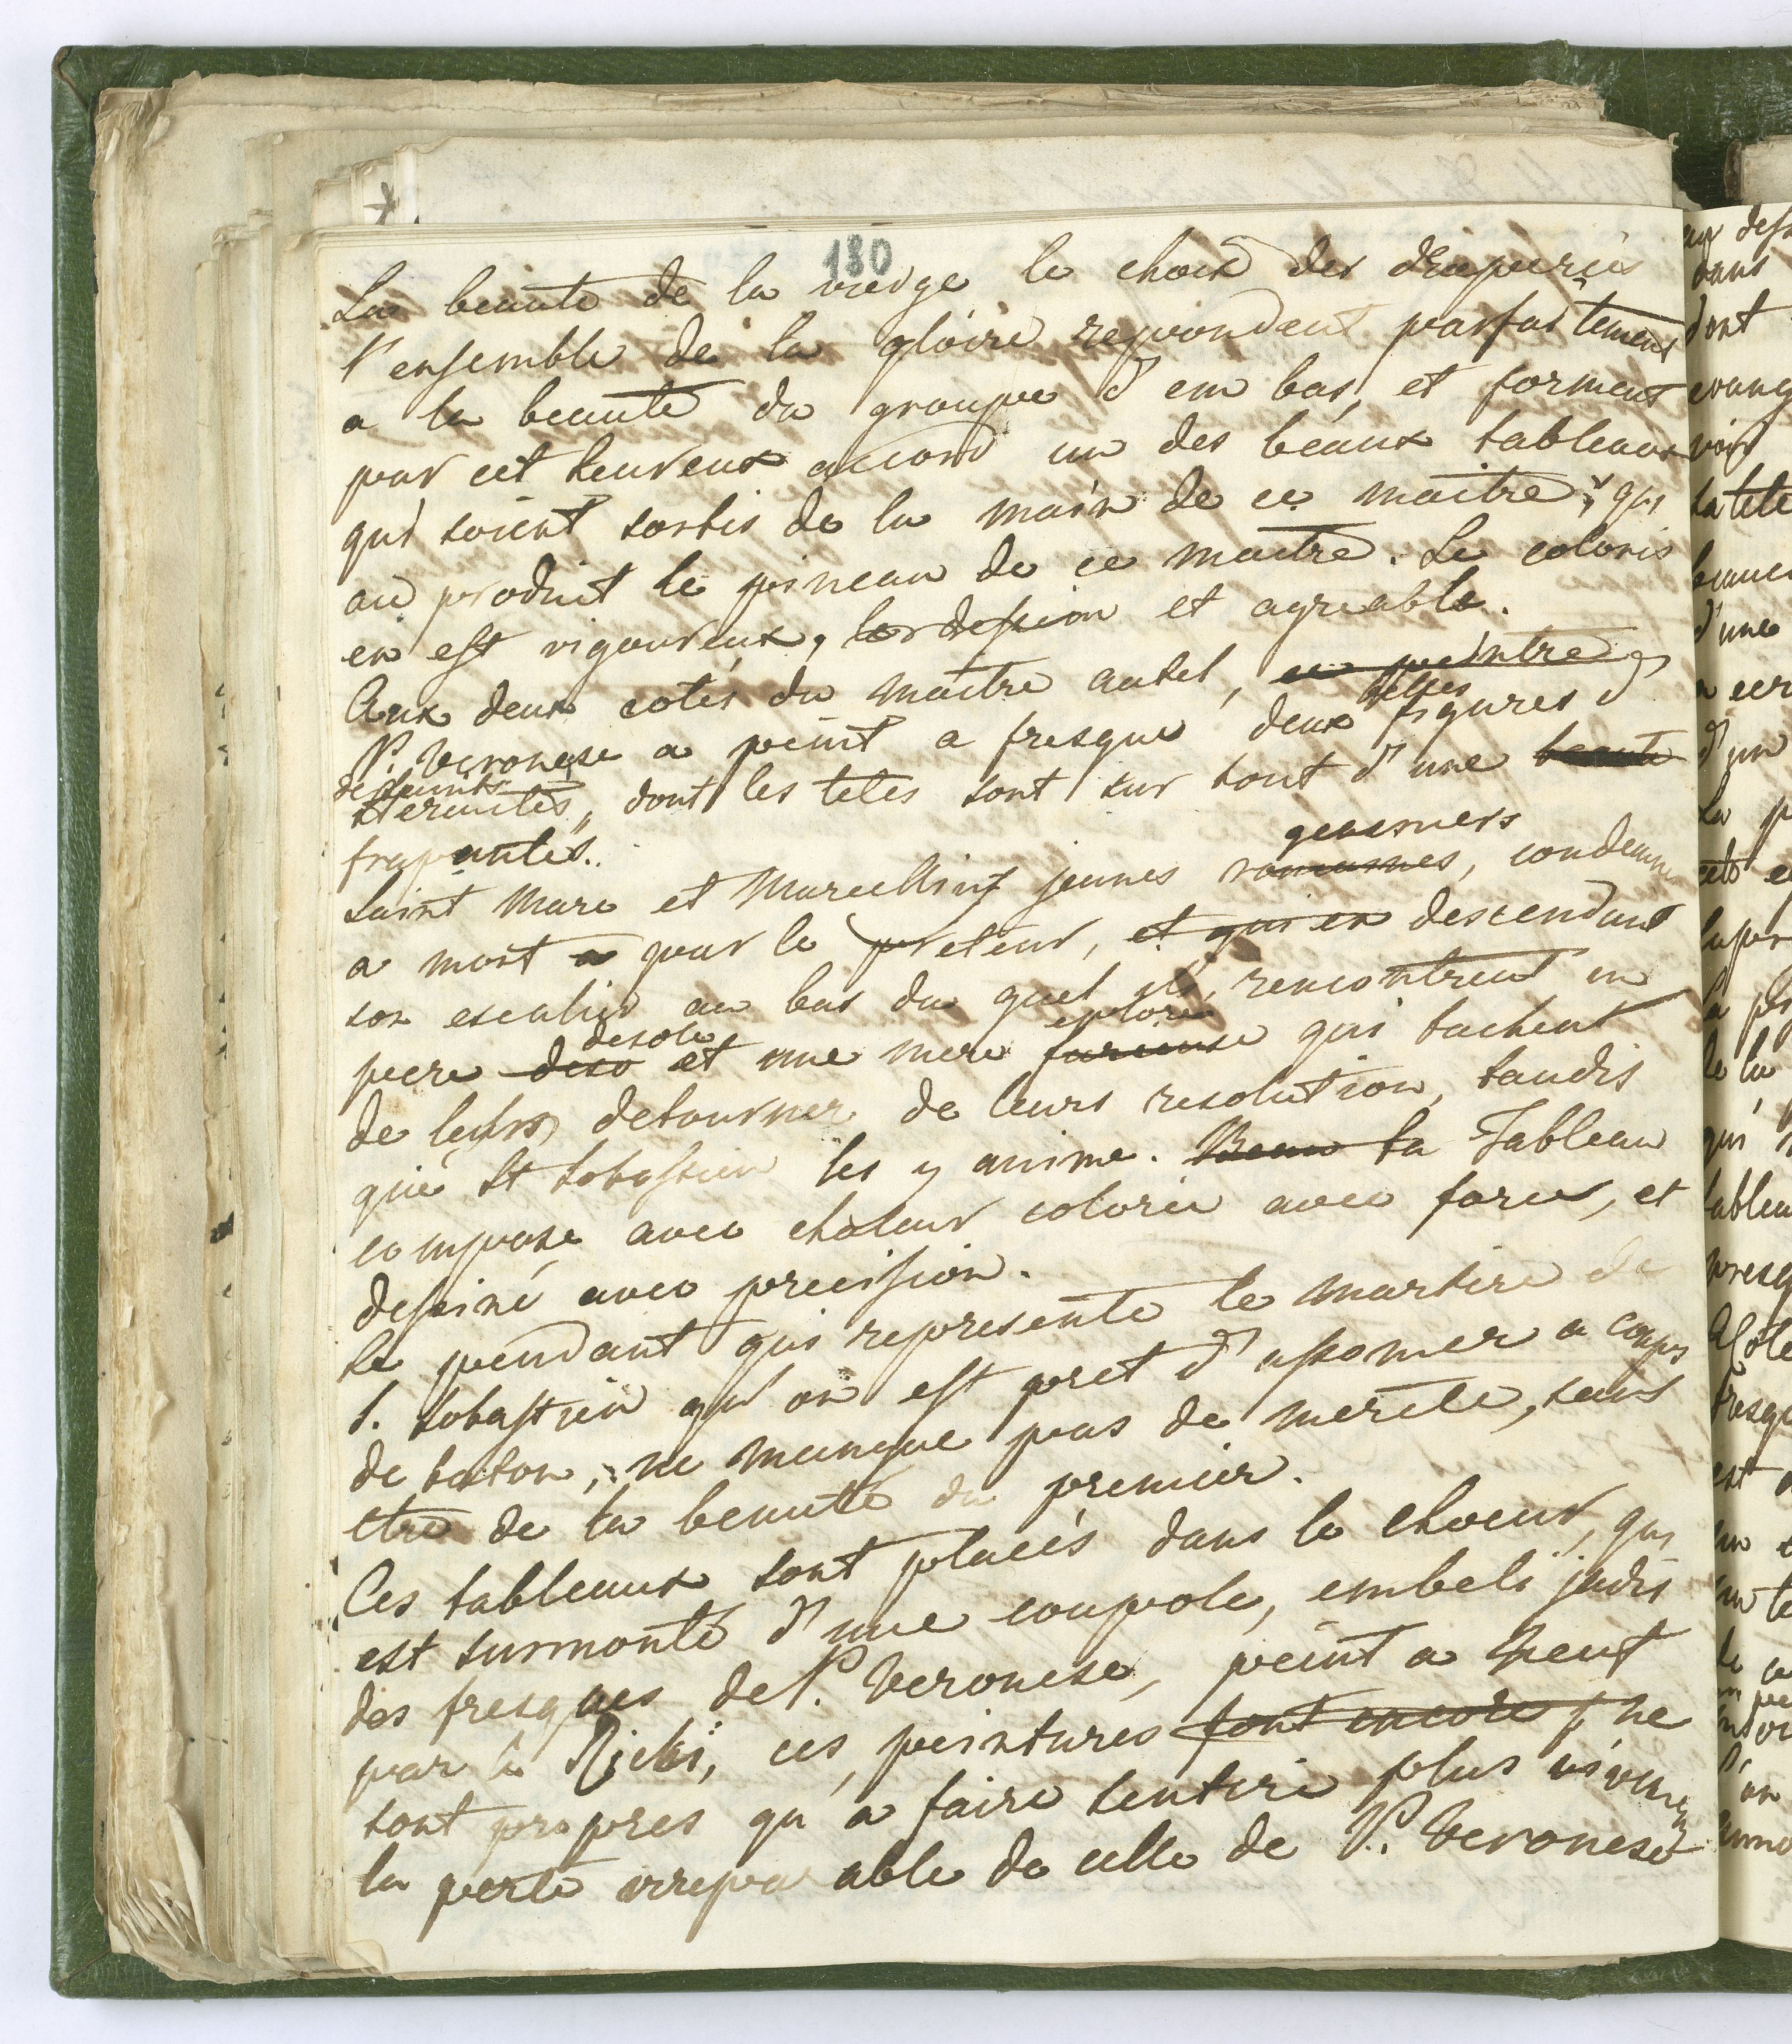 180
La beauté de la vierge le choix des draperies
l'ensemble de la gloire repondent parfaitement
a la beauté du groupe d'em bas, et forment
par cet heureux accord un des beaux tableaux
qui soient sortis de la main de ce maitre, qui
au produit le pinceau de ce maitre. Le coloris
en est vigoureux, et agreable.
Aux deux cotés du maitre autel, ce peintre
P. Veronese a peint a fresque deux belles figures d
hermites, dont les tetes sont sur tout d'une beauté
frapantes.
Saint Marc et Marcellin jeunes romaines, condemne
a mort a par le preteur, et qui en descendant
son escalier au bas du quel ils rencontrent un
desolé eplorée
pere deso et une mere furieuse qui tachent
de leurs detourner de leurs resolution, tandis
que St Sebastien les y anime. Beau ta Tableau
compose avec chaleur colorie avec force, et
dessiné avec precision.
Le pendant qui represente le martire de
S. Sebastien qu'on est pret d'assomer a coups
de baton, ne manque pas de merite, sans
etre de la beauté du premier.
Ces tableaux sont placés dans le choeur, qui
est surmonté d'une coupole, embeli jadis
des fresques de P. Veronese, peint a neuf
par le Richi, ces peintures sont encore ne
sont propres qu'a faire sentire plus vivement
la perte irreparable de celle de P. Veronese